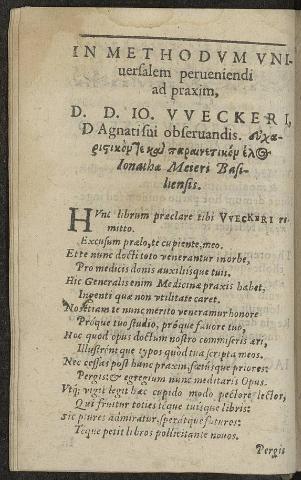 IN METHODVM VNI-
uersalem perueniendi
ad praxim,
D. D. IO. VVECKERI,
D Agnati sui obseruandis. εὐχα-
ριστικόν τε καὶ παραινετικόν
Ionathæ Meieri Basi-
liensis.
HVnc librum præclare tibi VVECKERI re-
mitto.
Excusum prælo, te cupiente, meo.
Et te nunc docti toto venerantur in orbe,
Pro medicis donis auxiliisque tuis.
Hic Generalis enim Medicinæ praxis habet.
Inuenti quæ non vtilitate caret.
Nos etiam te nunc merito veneramur honore
Próque tuo studio, próque fauore tuo,
Hoc quod opus doctum nostro commiseris æri,
Illustrént que typos quod tua scripta meos.
Nec cesses post hunc praxim, fœtusque priores:
Pergis: & egregium nunc meditaris Opus.
Vtq; vigil legit hæc cupido modo pectore lector,
Qui fruitur toties teque tuisque libris:
Sic plures admiratur, speratque futuros:
Teque petit libros pollicitante nouos.
Pergis